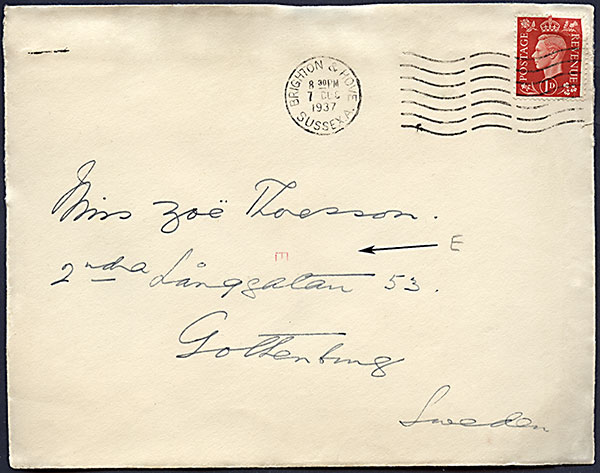 BRIGHTON & HOVE
8 30 PM
7 DEC
1937
SUSSEX.A.
POSTAGE
REVENUE
1D
Miss Zoë Thoesson.
E
E
2ndra Långgatan 53.
Gothenburg
Sweden